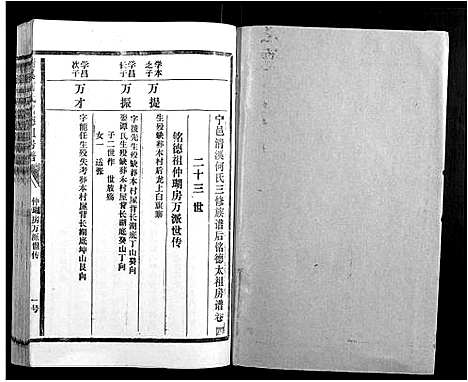 宁邑清溪何氏三修族谱后铭德太祖房谱卷四
二十三世
铭德祖仲瑚房万派世传
学本之子
万提
生殁缺葬本村后龙上白旗寨
学昌长子
万振
字陵先生殁缺葬本村屋背长湖底丁山癸向
娶谭氏生殁缺葬本村屋背长湖底癸山丁向
子二世作 世放殇
女一 适张
学昌次子
万才
字能任生殁失考葬本村屋背长湖底坤山艮向
仲瑚房万派世传
一号